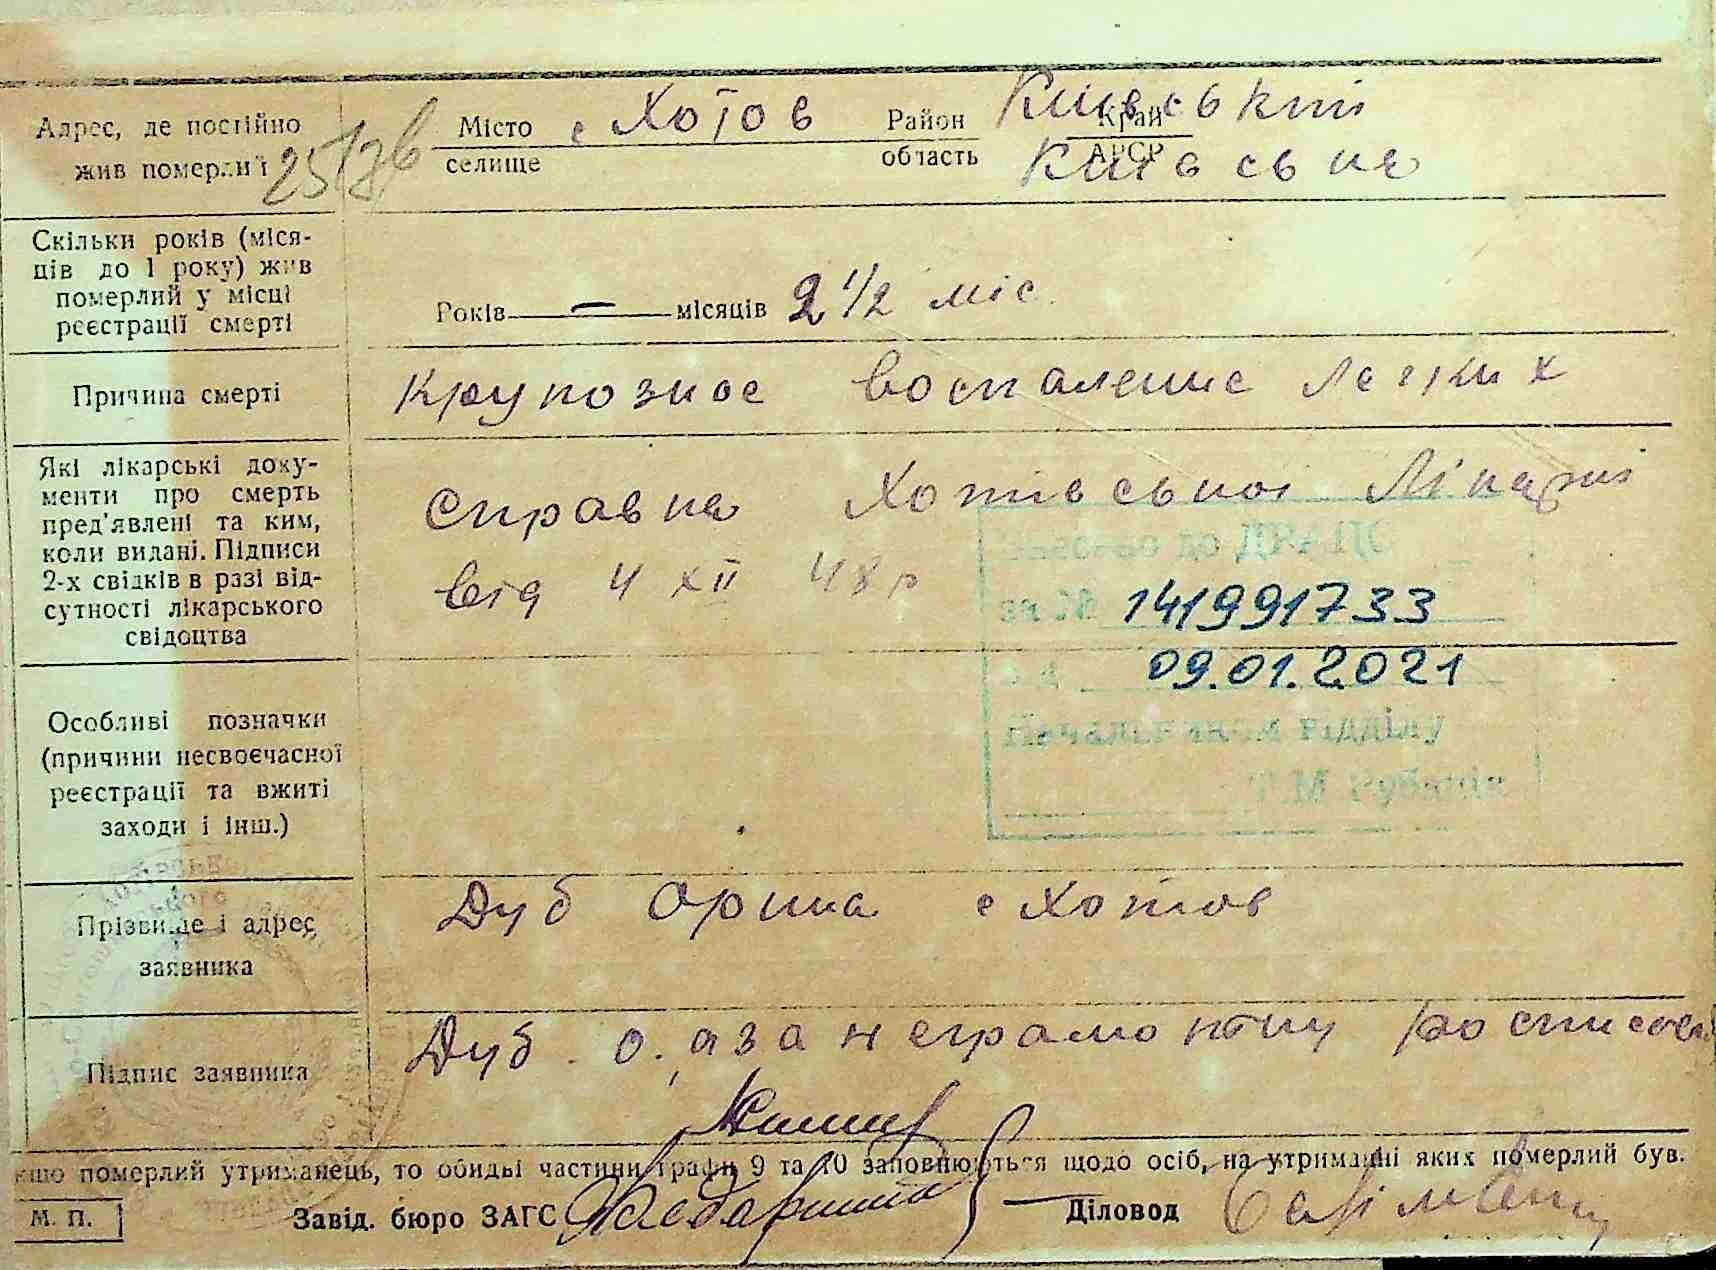 Адрес, де постійно жив померлий
25/Ів
Місто селище с Хотов Район область Київський Край АРСР Київська
Скільки років (міся-
ців до 1 року) жив
померлий у місці
реєстрації смерті
Років — місяців 2 1/2 міс.
Причина смерті
Крупозное воспаление легких
Які лікарські доку-
менти про смерть
пред'явлені та ким,
коли видані. Підписи
2-х свідків в разі від-
сутності лікарського
свідоцтва
Справка Хотівської Лікарні
від 4 XII 48 р
до ДРАЦС
за № 141991733
09.01.2021
Начальником відділу
Особливі позначки
(причини несвоєчасної
реєстрації та вжиті
заходи і інш.)
Прізвище і адрес
заявника
Дуб Орина с Хотов
Підпис заявника
Дуб. О. а за неграмотну
померлий утриманець, то обидві частини графи 9 та 10 заповнюються щодо осіб, на утриманні яких померлий був.
М. П.
Завід. бюро ЗАГС
Діловод